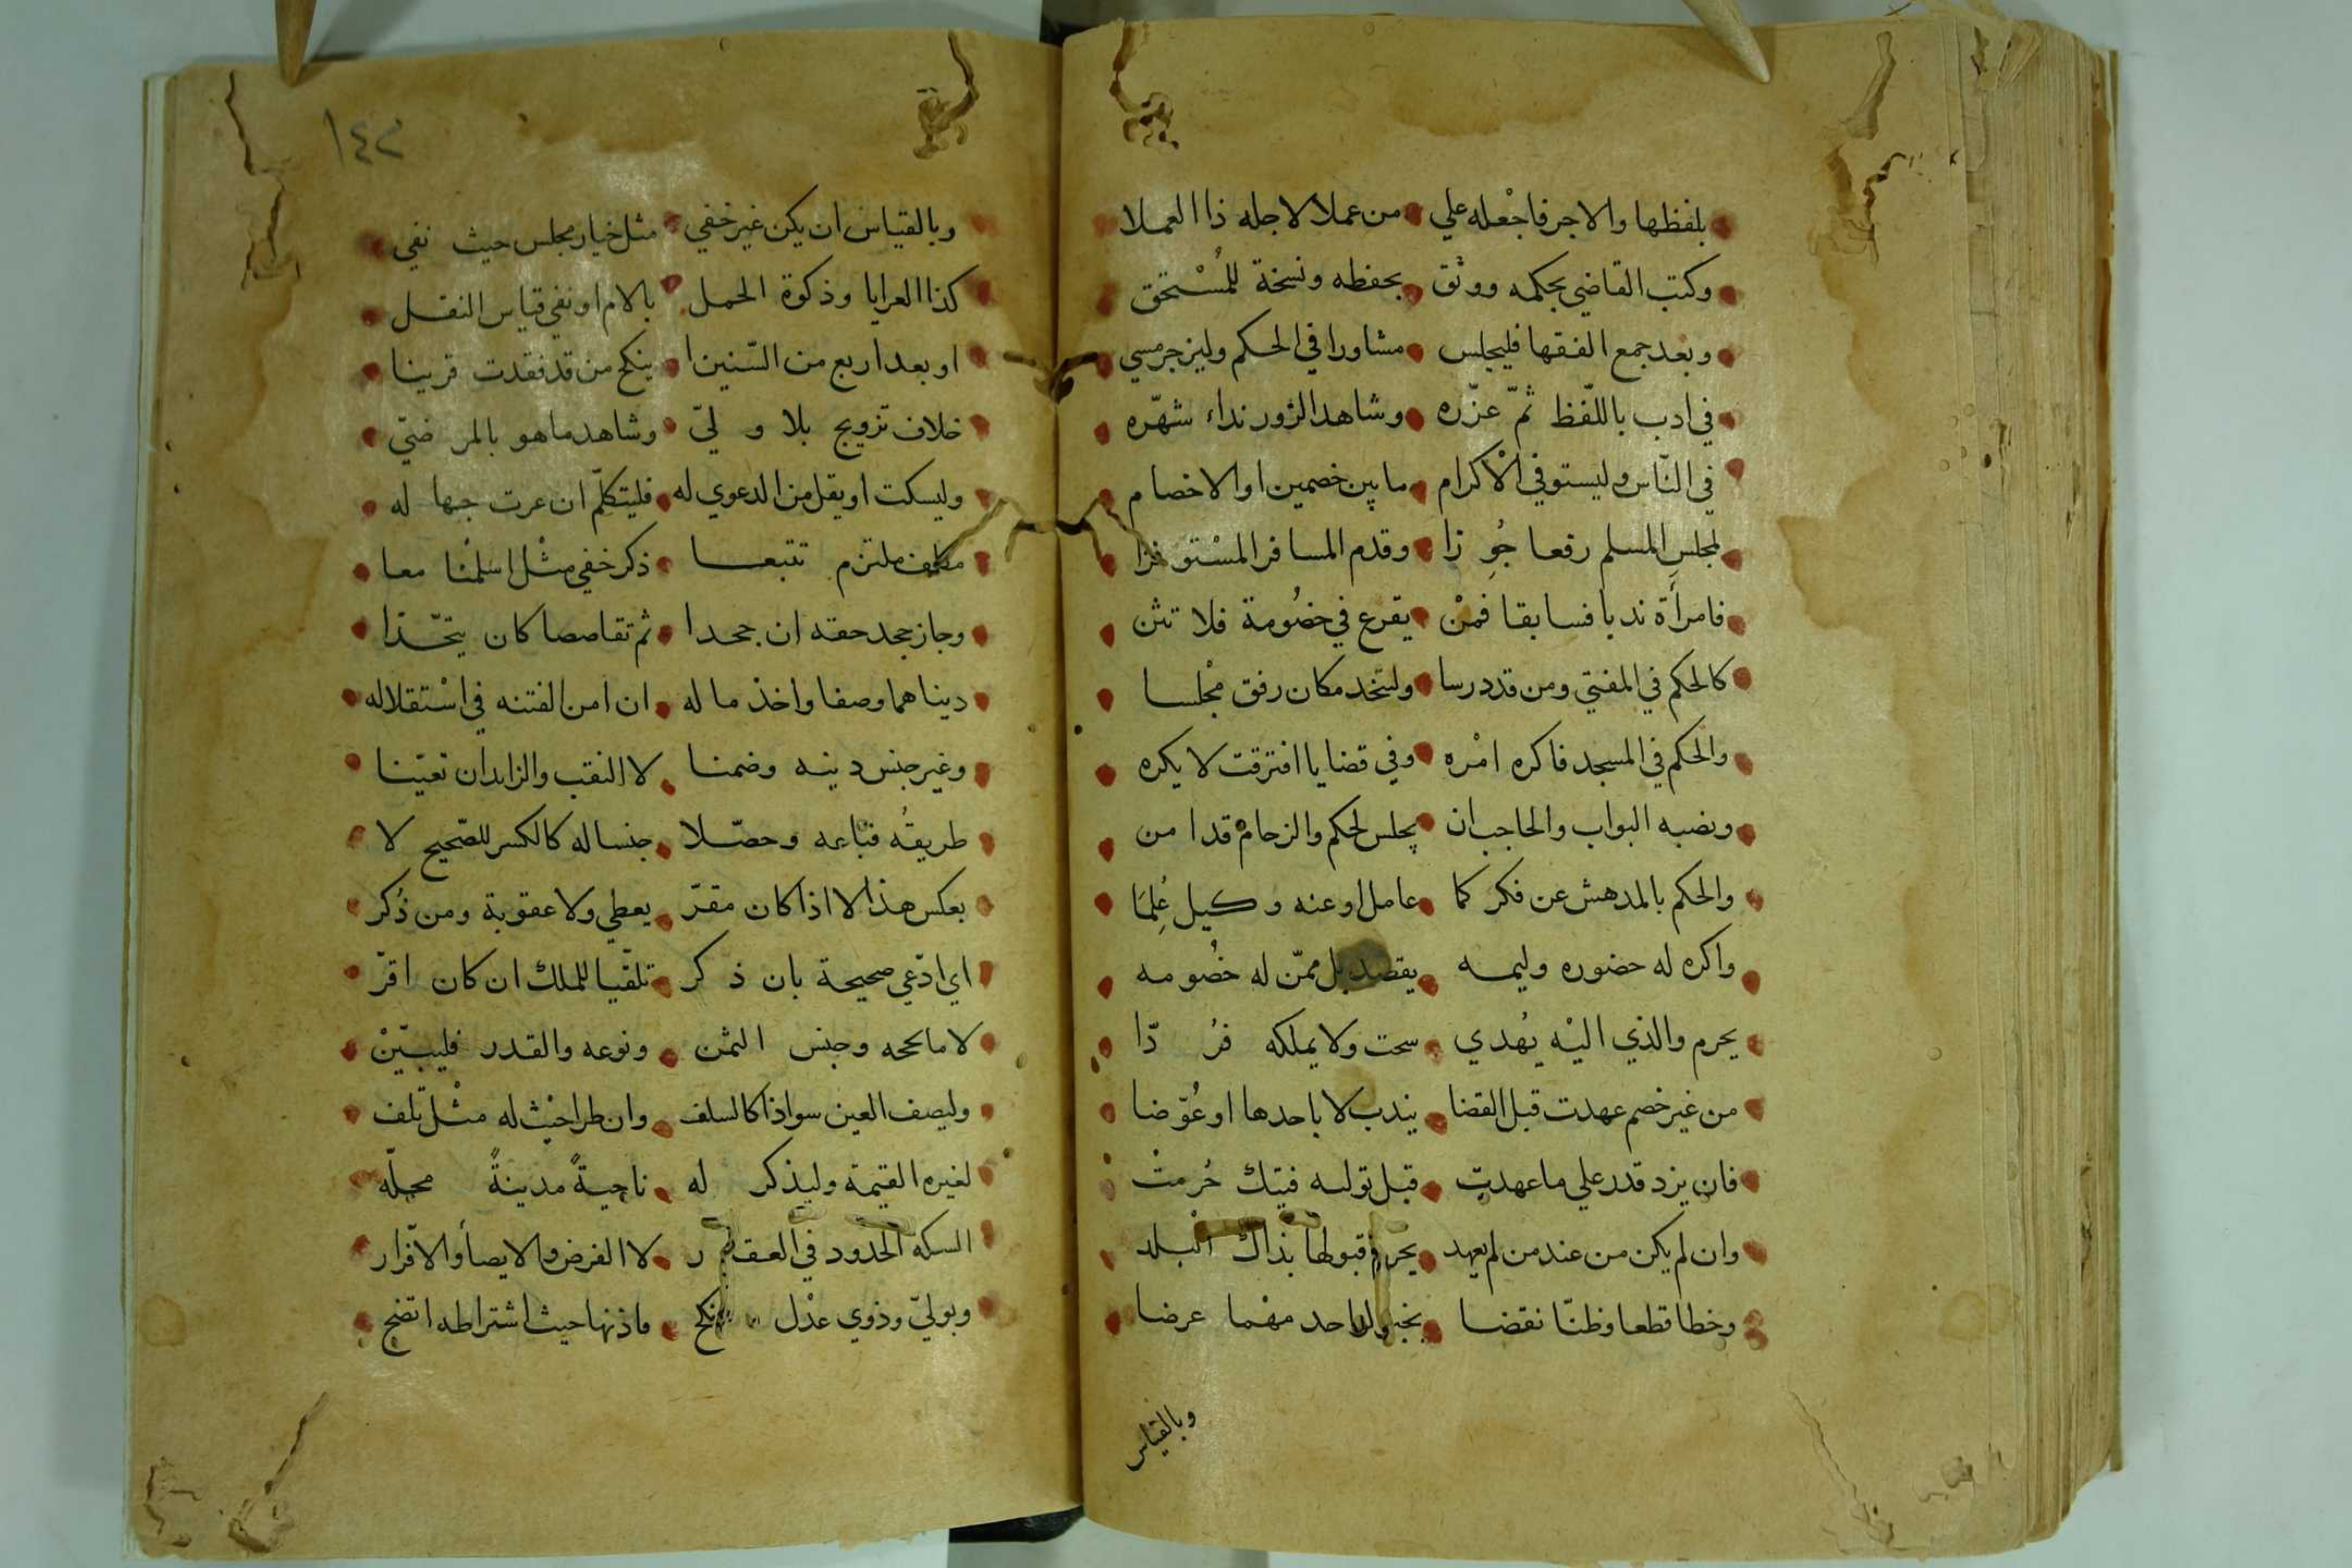 بلفظها والاجر فاجْعله علي من عملا لاجله ذا العملا
وكتب القاضي بحكمه ووثق بحفظه ونسخة للمُسْتحق
وبعد جمع الفقها فليجلس مشاورا في الحكم وليزجر مسي
في ادب باللّفظ ثمّ عزّره وشاهد الزور نداء شهّره
في النّاس وليستو في الْاكرام ما بين خصمين او الاخصام
لمجلسِ المسلم رفعا جُوِزا وقدم المسافر المسْتوفزا
فامرأة ندبا فسابقا فمنْ يقرع في خصُومة فلا تثن
كالحكم في المفتي ومن قد درسا وليتخد مكان رفق مجْلسا
والحكم في المسجد فاكره امْره وفي قضايا افترقت لا يكره
ونصبه البواب والحاجب ان يجلس لحكم والزحامُ قد امن
والحكم بالمدهش عن فكر كما عامل او عنه وكيل عُلِمَا
واكره له حضوره وليمه يقصد بل ممّن له خصُومه
يحرم والذي اليْه يُهدي سحت ولا يملكه فرُدّا
من غير خصم عهدت قبل القضا يندب لا باحدها او عُوّضا
فان يزد قدر علي ما عهدت قبل توليه فتيك حُرمتْ
وان لم يكن من عند من لم يعهد يحرم قبولها بذاك البلد
وخطا قطعا وظنّا نقضا بخبر لواحد مهْما عرضا
وبالقياس
١٤٢
وبالقياس ان يكن غير خفي مثل خيار مجلس حيث نفي
كذا العرايا وذكوة الحمل بالام او نفي قياس النقل
او بعد اربع من السّنينا ينكح من قد فقدت قرينا
خلاف تزويج بلا ولي وشاهد ما هو بالمرضيّ
وليسكت او يقل من الدعوي له فليتكلّم ان عرت جها له
مكلف ملتزم تتبعا ذكر خفي مثْل اسلمْنا معا
وجاز جحد حقه ان جحدا ثم تقاصصا كان يتحّدا
ديناهما وصفا واخذ ما له ان امن الفتنه في اسْتقلاله
وغير جنس دينه وضمنا لا النقب والزايد ان تعيّنا
طريقُه فباعه وحصّلا جنسا له كالكسر للصّحيح لا
بعكس هذا لا اذا كان مقرّ يعطي ولا عقوبة ومن ذُكر
اي ادّعي صحيحة بان ذكر تلقّيا للملك ان كان اقرّ
لا ما نححه وجنس الثمن ونوعه والقدر فليبيّنْ
وليصف العين سواذا كالسلف وان طرا حِنْث له مثْل تلف
لغيره القيمة وليذكر له ناحيةً مدينةً محلّه
السكه الحدود في العقار لا الفرض والايصا والاقرار
وبوليّ وذوي عدْل نكح واذنها حيث اشتراطه اتضح